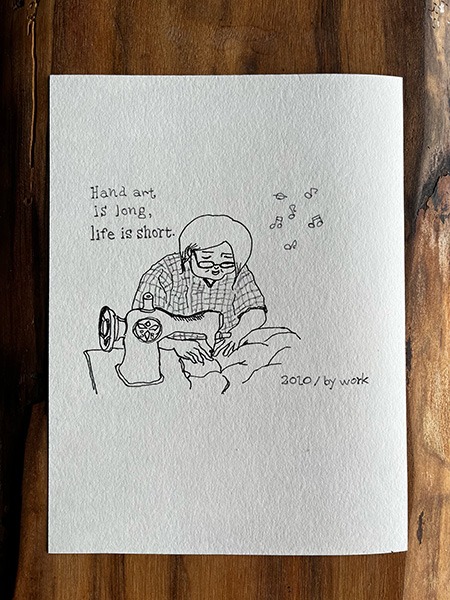 Hand art
is long,
life is short.
2020/by work